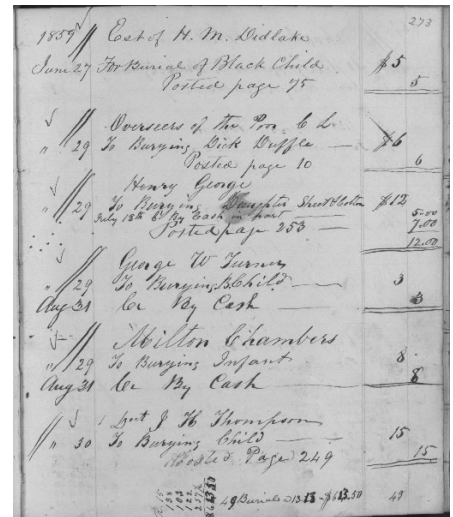 273
1859 Est of H. M. Didlake
June 27 For Burial of Black Child $5
Posted page 75 5
Overseers of the Poor C L
" 29 To Burying Dick Duffle $6
Posted page 10 6
Henry George
" 29 To Burying Daughter $12
July 18th By Cash in part 5.00
Posted page 253 7.00
12.00
George W Turner
" 29 To Burying B Child 3
Aug 31 Cr By Cash 3
Milton Chambers
" 29 To Burying Infant 8
Aug 31 Cr By Cash 8
J H Thompson
" 30 To Burying Child 15
Posted Page 249 15
49 Burials 49